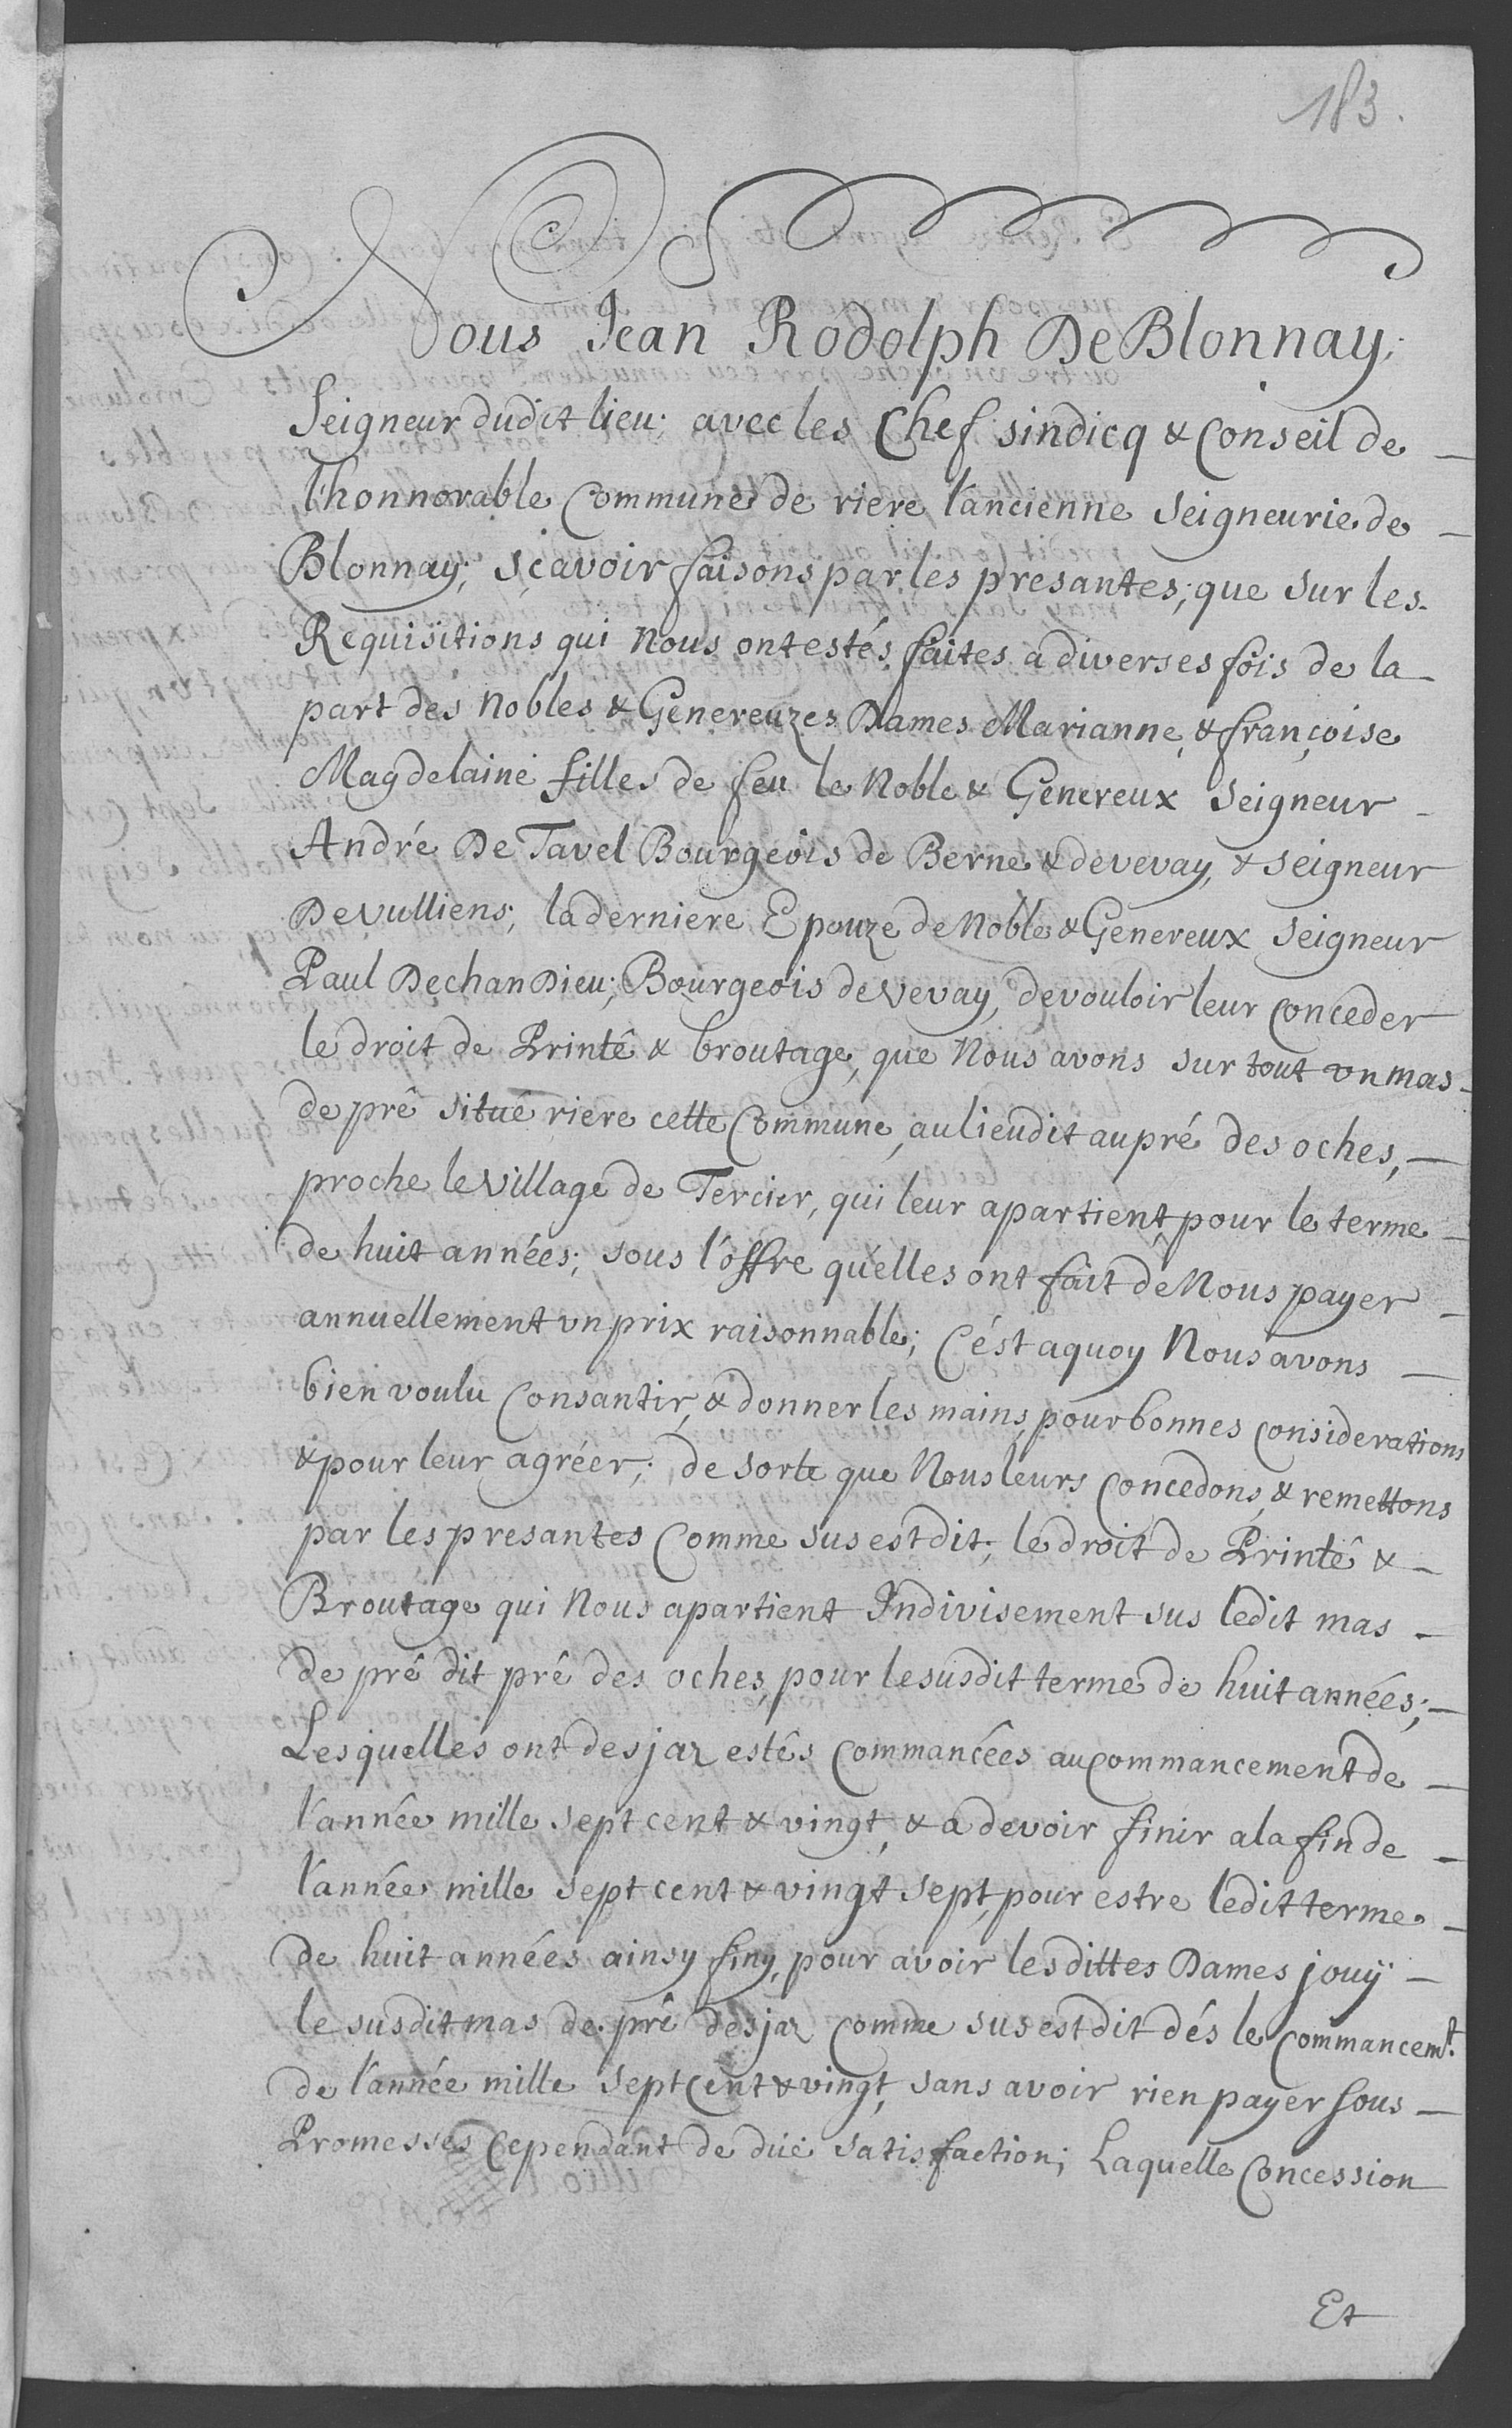 183.
Nous Jean Rodolph De Blonnay;
Seigneur dudit lieu; avec les Chef sindicq & Conseil de
l'honnorable Commune de riere l'ancienne Seigneurie de
Blonnay; sçavoir faisons par les presantes; que sur les
Requisitions qui Nous ont estés faites a diverses fois de la
part des Nobles & Genereuzes Dames Marianne, & françoise
Magdelaine filles de feu le Noble & Genereux Seigneur
André De Tavel Bourgeois de Berne & de vevay, & seigneur
De vulliens; la derniere Epouze de Noble & Genereux Seigneur
Paul De chan Dieu; Bourgeois de Vevay, de vouloir leur conceder
le droit de Printé & broutage, que Nous avons sur tout un mas
de pré situé riere cette Commune, au lieu dit au pré des oches,
proche le village de Tercier, qui leur apartient, pour le terme
de huit années; sous l'offre qu'elles ont fait de Nous payer
annuellement un prix raisonnable; C'ést a quoy Nous avons
bien voulu Consantir, & donner les mains, pour bonnes considerations
& pour leur agréer; de sorte que Nous leurs Concedons, & remettons
par les presantes Comme sus est dit; le droit de Printé &
Broutage qui Nous apartient Indivisement sus ledit mas
de pré dit pré des oches, pour le susdit terme de huit années;
Lesquelles ont desjaz estés Commancées au commancement de
l'année mille sept cent & vingt, & a devoir finir a la fin de
l'année mille sept cent & vingt sept, pour estre ledit terme
de huit années ainsy finy, pour avoir lesdittes Dames jouÿ
le susdit mas de pré desjaz Comme sus est dit dés le Commancemt.
de l'année mille sept cent & vingt, sans avoir rien payer sous
Promesses Cependant de düe satisfaction; Laquelle Concession
Et